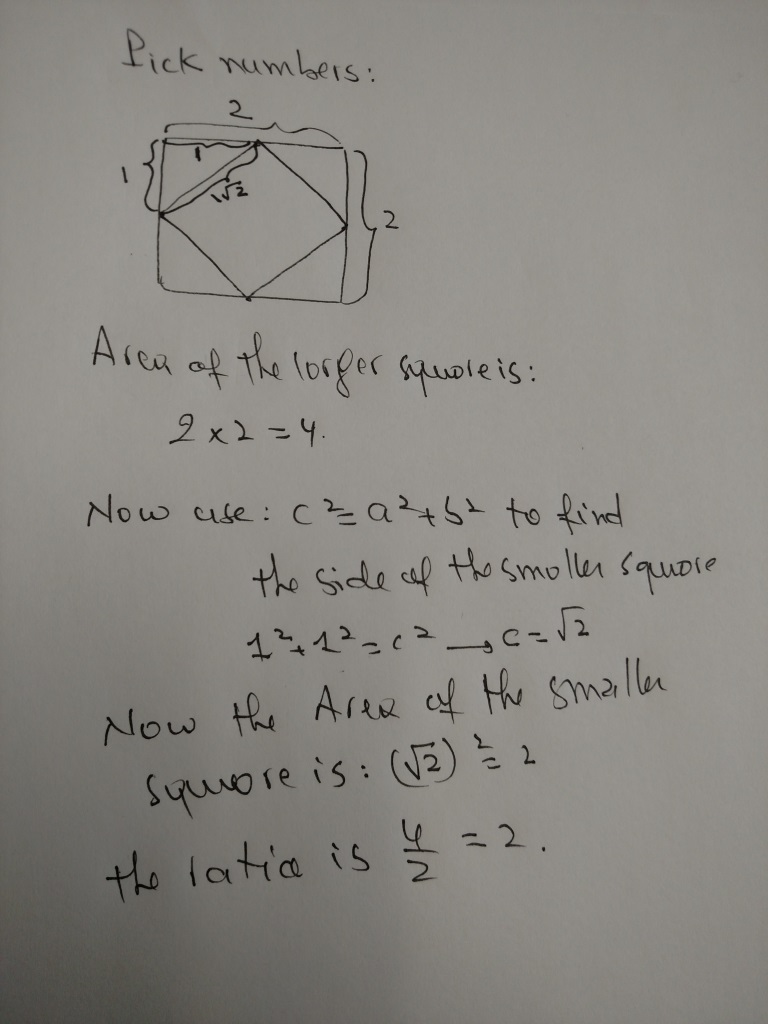 Pick numbers:
2
1
1
√2
2
Area of the larger square is:
2 x 2 = 4.
Now use: c² = a² + b² to find
the side of the smaller square
1² + 1² = c² → c = √2
Now the Area of the smaller
square is: (√2)² = 2
the ratio is 4/2 = 2.